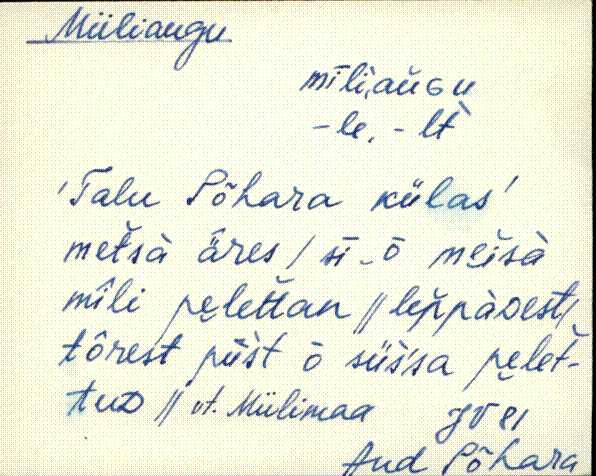 Müliaugu
mīlì̭aŭGu
-le, -lt
'Talu Põhara külas'
metsà äres / sī-ō mei̭sà
mîli pelettan // leppàDest/
tôrest pūst ō süs'sa pelet-
tuD // vt. Mülimaa JV 81
Aud Põhara